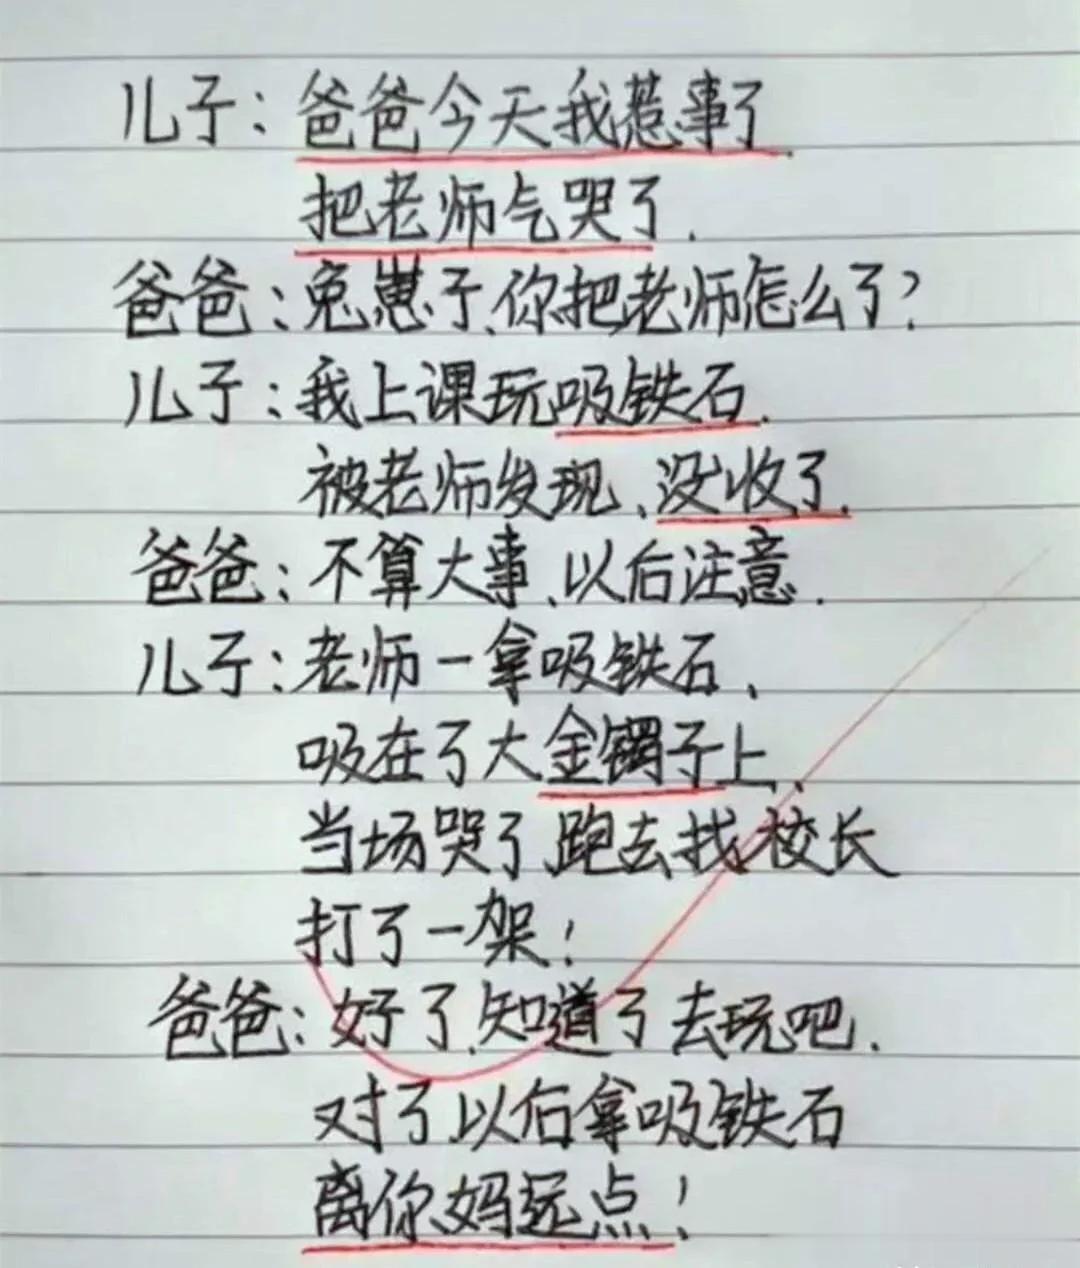 儿子：爸爸今天我惹事了.
把老师气哭了.
爸爸：兔崽子、你把老师怎么了？
儿子：我上课玩吸铁石.
被老师发现、没收了.
爸爸：不算大事、以后注意.
儿子：老师一拿吸铁石、
吸在了大金镯子上、
当场哭了、跑去找校长
打了一架！
爸爸：好了、知道了去玩吧.
对了、以后拿吸铁石
离你妈远点！